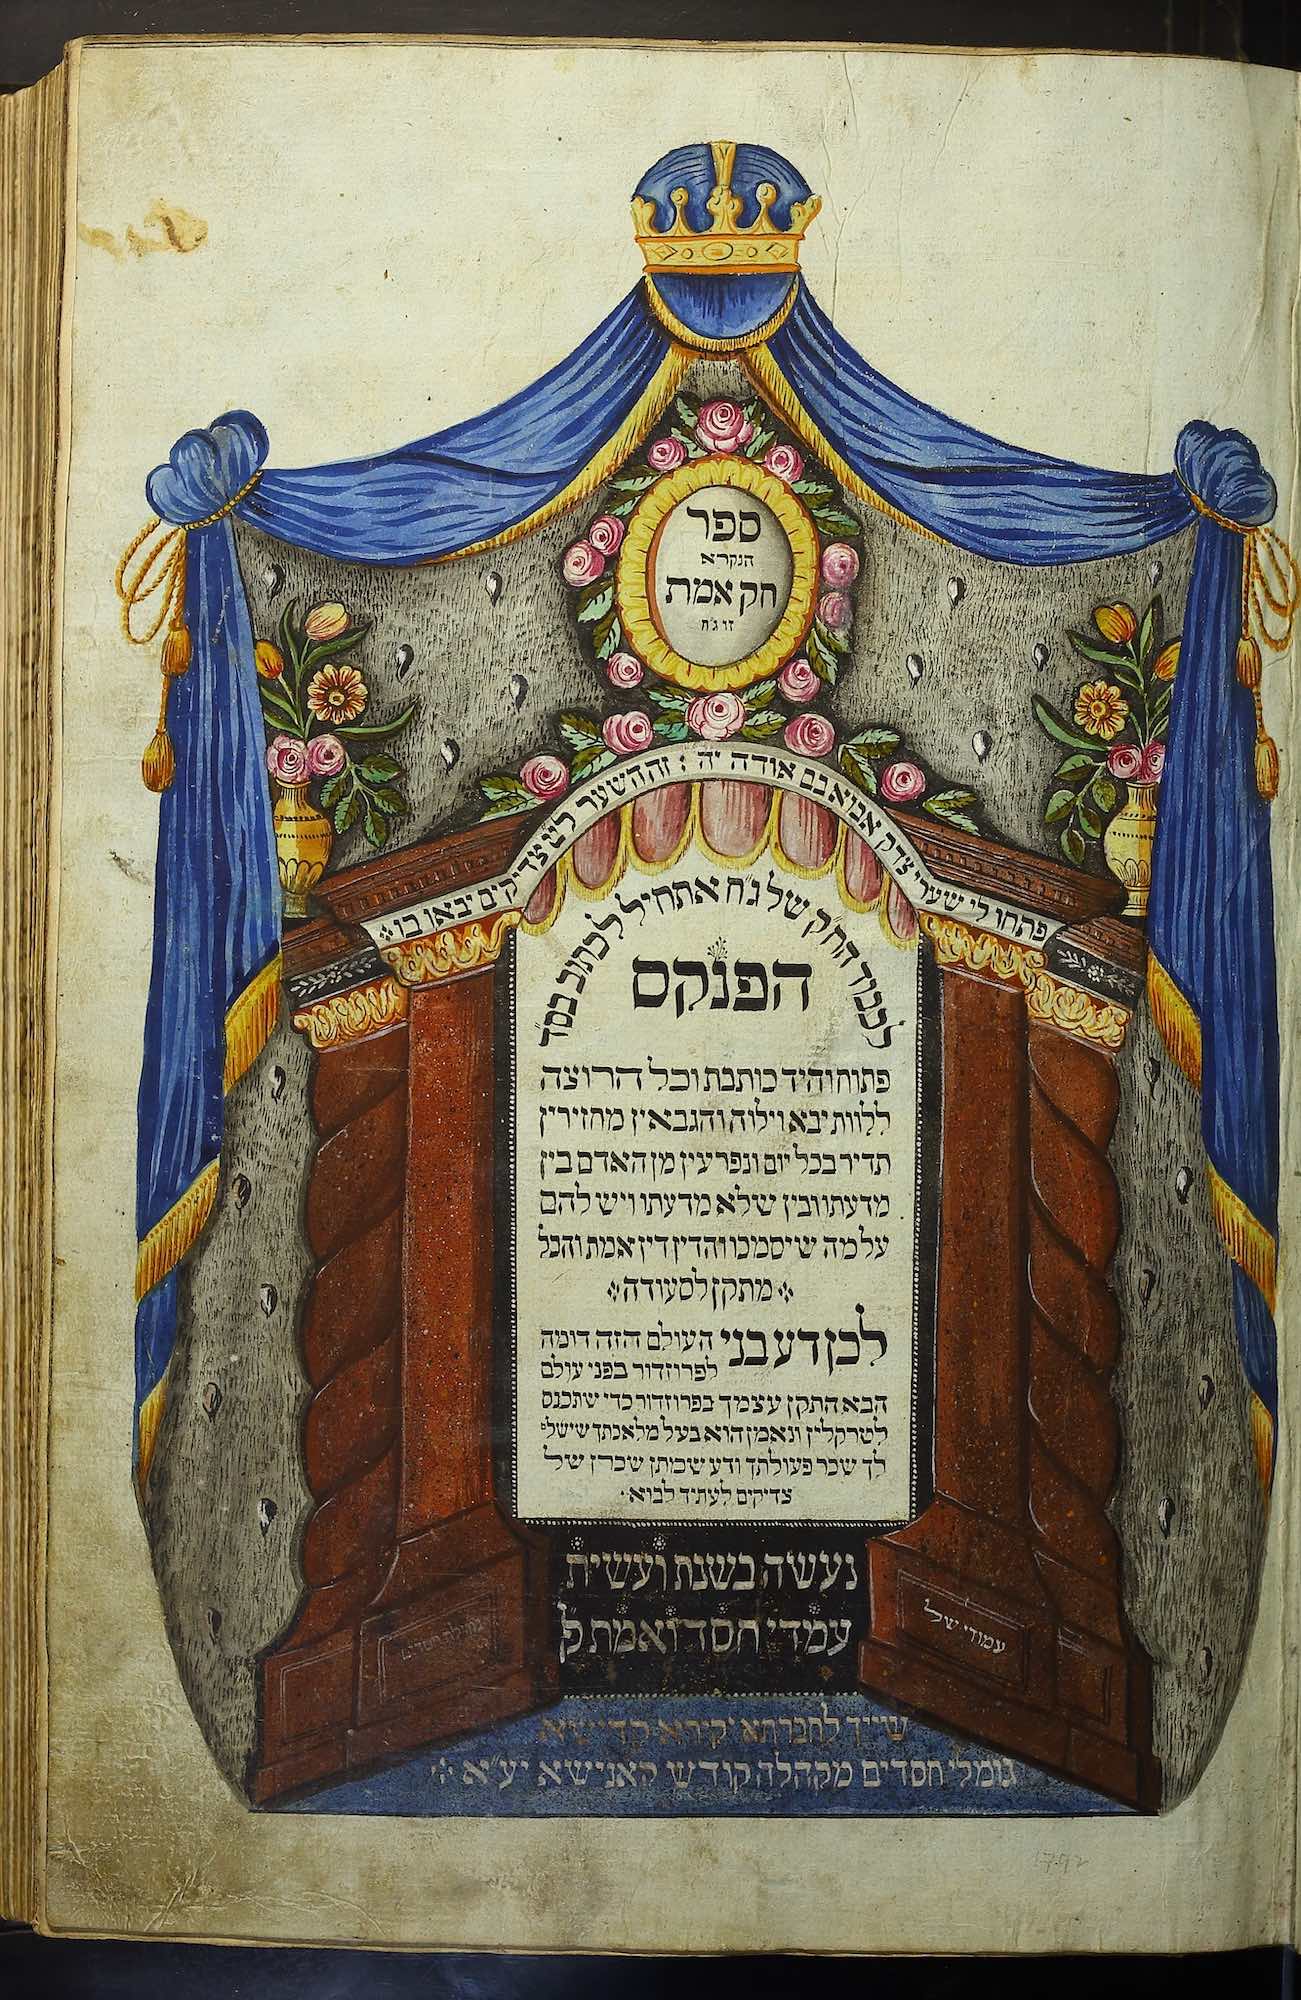 ספר
הנקרא
חק אמת
זו ג״ח
פתחו לי שערי צדק אבוא בם אודה יה : זה השער לה׳ צדיקים יבאו בו
לכבוד החק של ג״ח אתחיל לכתוב בס״ד
הפנקס
פתוח והיד כותבת וכל הרוצה
ללוות יבא וילוה והגבאין מחזירין
תדיר בכל יום ונפרעין מן האדם בין
מדעתו ובין שלא מדעתו ויש להם
על מה שיסמכו והדין דין אמת והכל
מתקן לסעודה
לכן דע בני העולם הזה דומה
לפרוזדור בפני עולם
הבא התקן עצמך בפרוזדור כדי שתכנס
לטרקלין ונאמן הוא בעל מלאכתך שישל׳
לך שכר פעולתך ודע שמתן שכרן של
צדיקים לעתיד לבוא
נעשה בשנת ועשית
עמדי חסד ואמת ל
עמודי של
גמילת חסדים
שייך לחברתא יקירא קדישא
גומלי חסדים מקהלה קודש קאנישא יע״א
1792